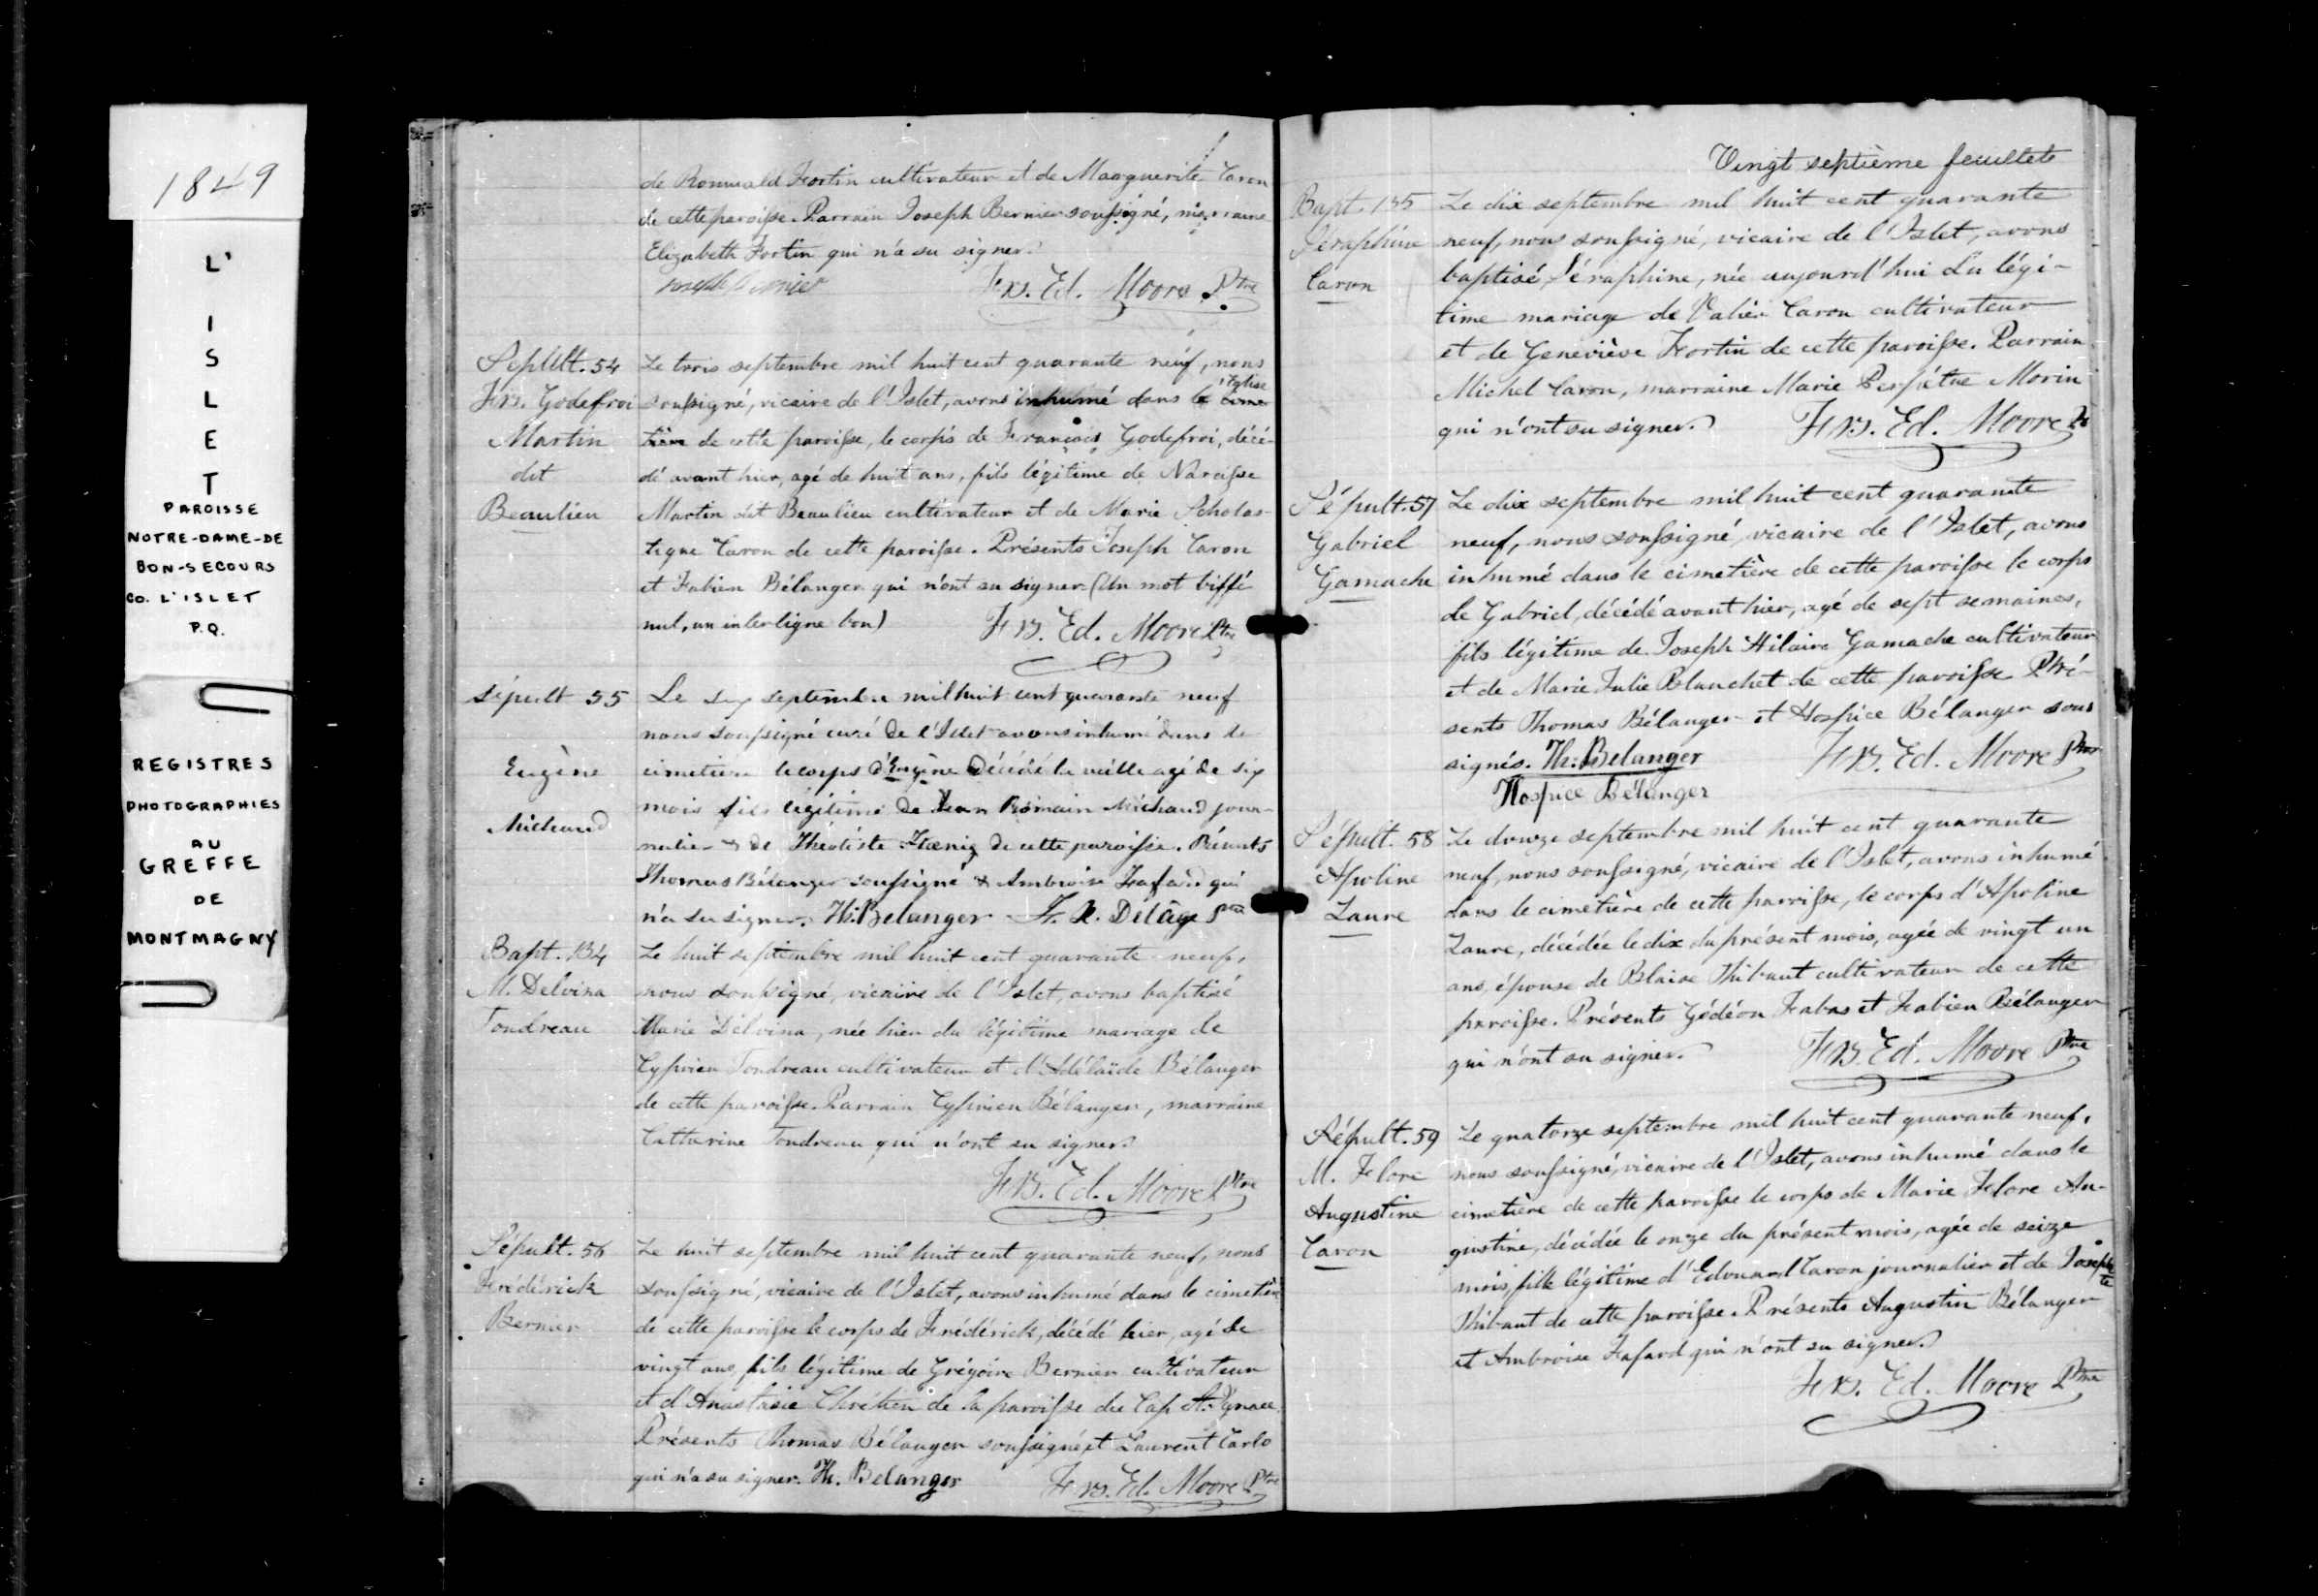 1849
L'
I
S
L
E
T
PAROISSE
NOTRE-DAME-DE
BON-SECOURS
CO. L'ISLET
P.Q.
REGISTRES
PHOTOGRAPHIES
AU
GREFFE
DE
MONTMAGNY
de Romuald Fortin cultivateur et de Marguerite Caron
de cette paroisse. Parrain Joseph Bernier soussigné, marraine
Elizabeth Fortin qui n'a su signer.
Joseph Bernier Frs. Ed. Moore Ptre
Sepult. 54
Frs. Godefroi
Martin
dit
Beaulieu
Le trois septembre mil huit cent quarante neuf, nous
soussigné, vicaire de l'Islet, avons inhumé dans le cime- l'église
tière de cette paroisse, le corps de François Godefroi, décé-
dé avant hier, agé de huit ans, fils légitime de Narcisse
Martin dit Beaulieu cultivateur et de Marie Scholas-
tique Caron de cette paroisse. Présents Joseph Caron
et Fabien Bélanger qui n'ont su signer. (Un mot biffé
nul, un interligne bon) Frs. Ed. Moore Ptre
Sépult 55
Eugène
Michaud
Le six septembre mil huit cent quarante neuf
nous soussigné curé de l'Islet avons inhumé dans le
cimetiere le corps d'Eugène décédé la veille agé de six
mois fils légitime de Jean Romain Michaud jour-
nalier & de Théotiste Kœnig de cette paroisse. Présents
Thomas Bélanger soussigné & Ambroise Fafard qui
n'a su signer. Th: Belanger F. X. Delâge Ptre
Bapt. 134
M. Delvina
Tondreau
Le huit septembre mil huit cent quarante neuf,
nous soussigné, vicaire de l'Islet, avons baptisé
Marie Delvina, née hier du légitime mariage de
Cyprien Tondreau cultivateur et d'Adélaïde Bélanger
de cette paroisse. Parrain Cyprien Bélanger, marraine
Catherine Tondreau qui n'ont su signer.
Frs. Ed. Moore Ptre
Sépult. 56
Frédérick
Bernier
Le huit septembre mil huit cent quarante neuf, nous
soussigné, vicaire de l'Islet, avons inhumé dans le cimetière
de cette paroisse le corps de Frédérick, décédé hier, agé de
vingt ans, fils légitime de Grégoire Bernier cultivateur
et d'Anastasie Chrétien de la paroisse du Cap St. Ignace.
Présents Thomas Bélanger soussigné et Laurent Carlo
qui n'a su signer. Th. Belanger Frs. Ed. Moore Ptre
Vingt septième feuillet
Bapt. 135
Séraphine
Caron
Le dix septembre mil huit cent quarante
neuf, nous soussigné, vicaire de l'Islet, avons
baptisé Séraphine, née aujourd'hui du légi-
time mariage de Valier Caron cultivateur
et de Geneviève Fortin de cette paroisse. Parrain
Michel Caron, marraine Marie Perpétue Morin
qui n'ont su signer. Frs. Ed. Moore Ptre
Sépult. 57
Gabriel
Gamache
Le dix septembre mil huit cent quarante
neuf, nous soussigné, vicaire de l'Islet, avons
inhumé dans le cimetière de cette paroisse le corps
de Gabriel, décédé avant hier, agé de sept semaines,
fils légitime de Joseph Hilaire Gamache cultivateur
et de Marie Julie Blanchet de cette paroisse. Pré-
sents Thomas Bélanger et Hospice Bélanger sous
signés. Th: Belanger Frs. Ed. Moore Ptre
Hospice Bélanger
Sépult. 58
Apoline
Laure
Le douze septembre mil huit cent quarante
neuf, nous soussigné, vicaire de l'Islet, avons inhumé
dans le cimetière de cette paroisse, le corps d'Apoline
Laure, décédée le dix du présent mois, agée de vingt un
ans, épouse de Blaise Thibaut cultivateur de cette
paroisse. Présents Gédéon Fabas et Fabien Bélanger
qui n'ont su signer. Frs. Ed. Moore Ptre
Sépult. 59
M. Flore
Augustine
Caron
Le quatorze septembre mil huit cent quarante neuf,
nous soussigné, vicaire de l'Islet, avons inhumé dans le
cimetière de cette paroisse le corps de Marie Flore Au-
gustine, décédée le onze du présent mois, agée de seize
mois, fille légitime d'Edouard Caron journalier et de Josephte
Thibaut de cette paroisse. Présents Augustin Bélanger
et Ambroise Fafard qui n'ont su signer.
Frs. Ed. Moore Ptre